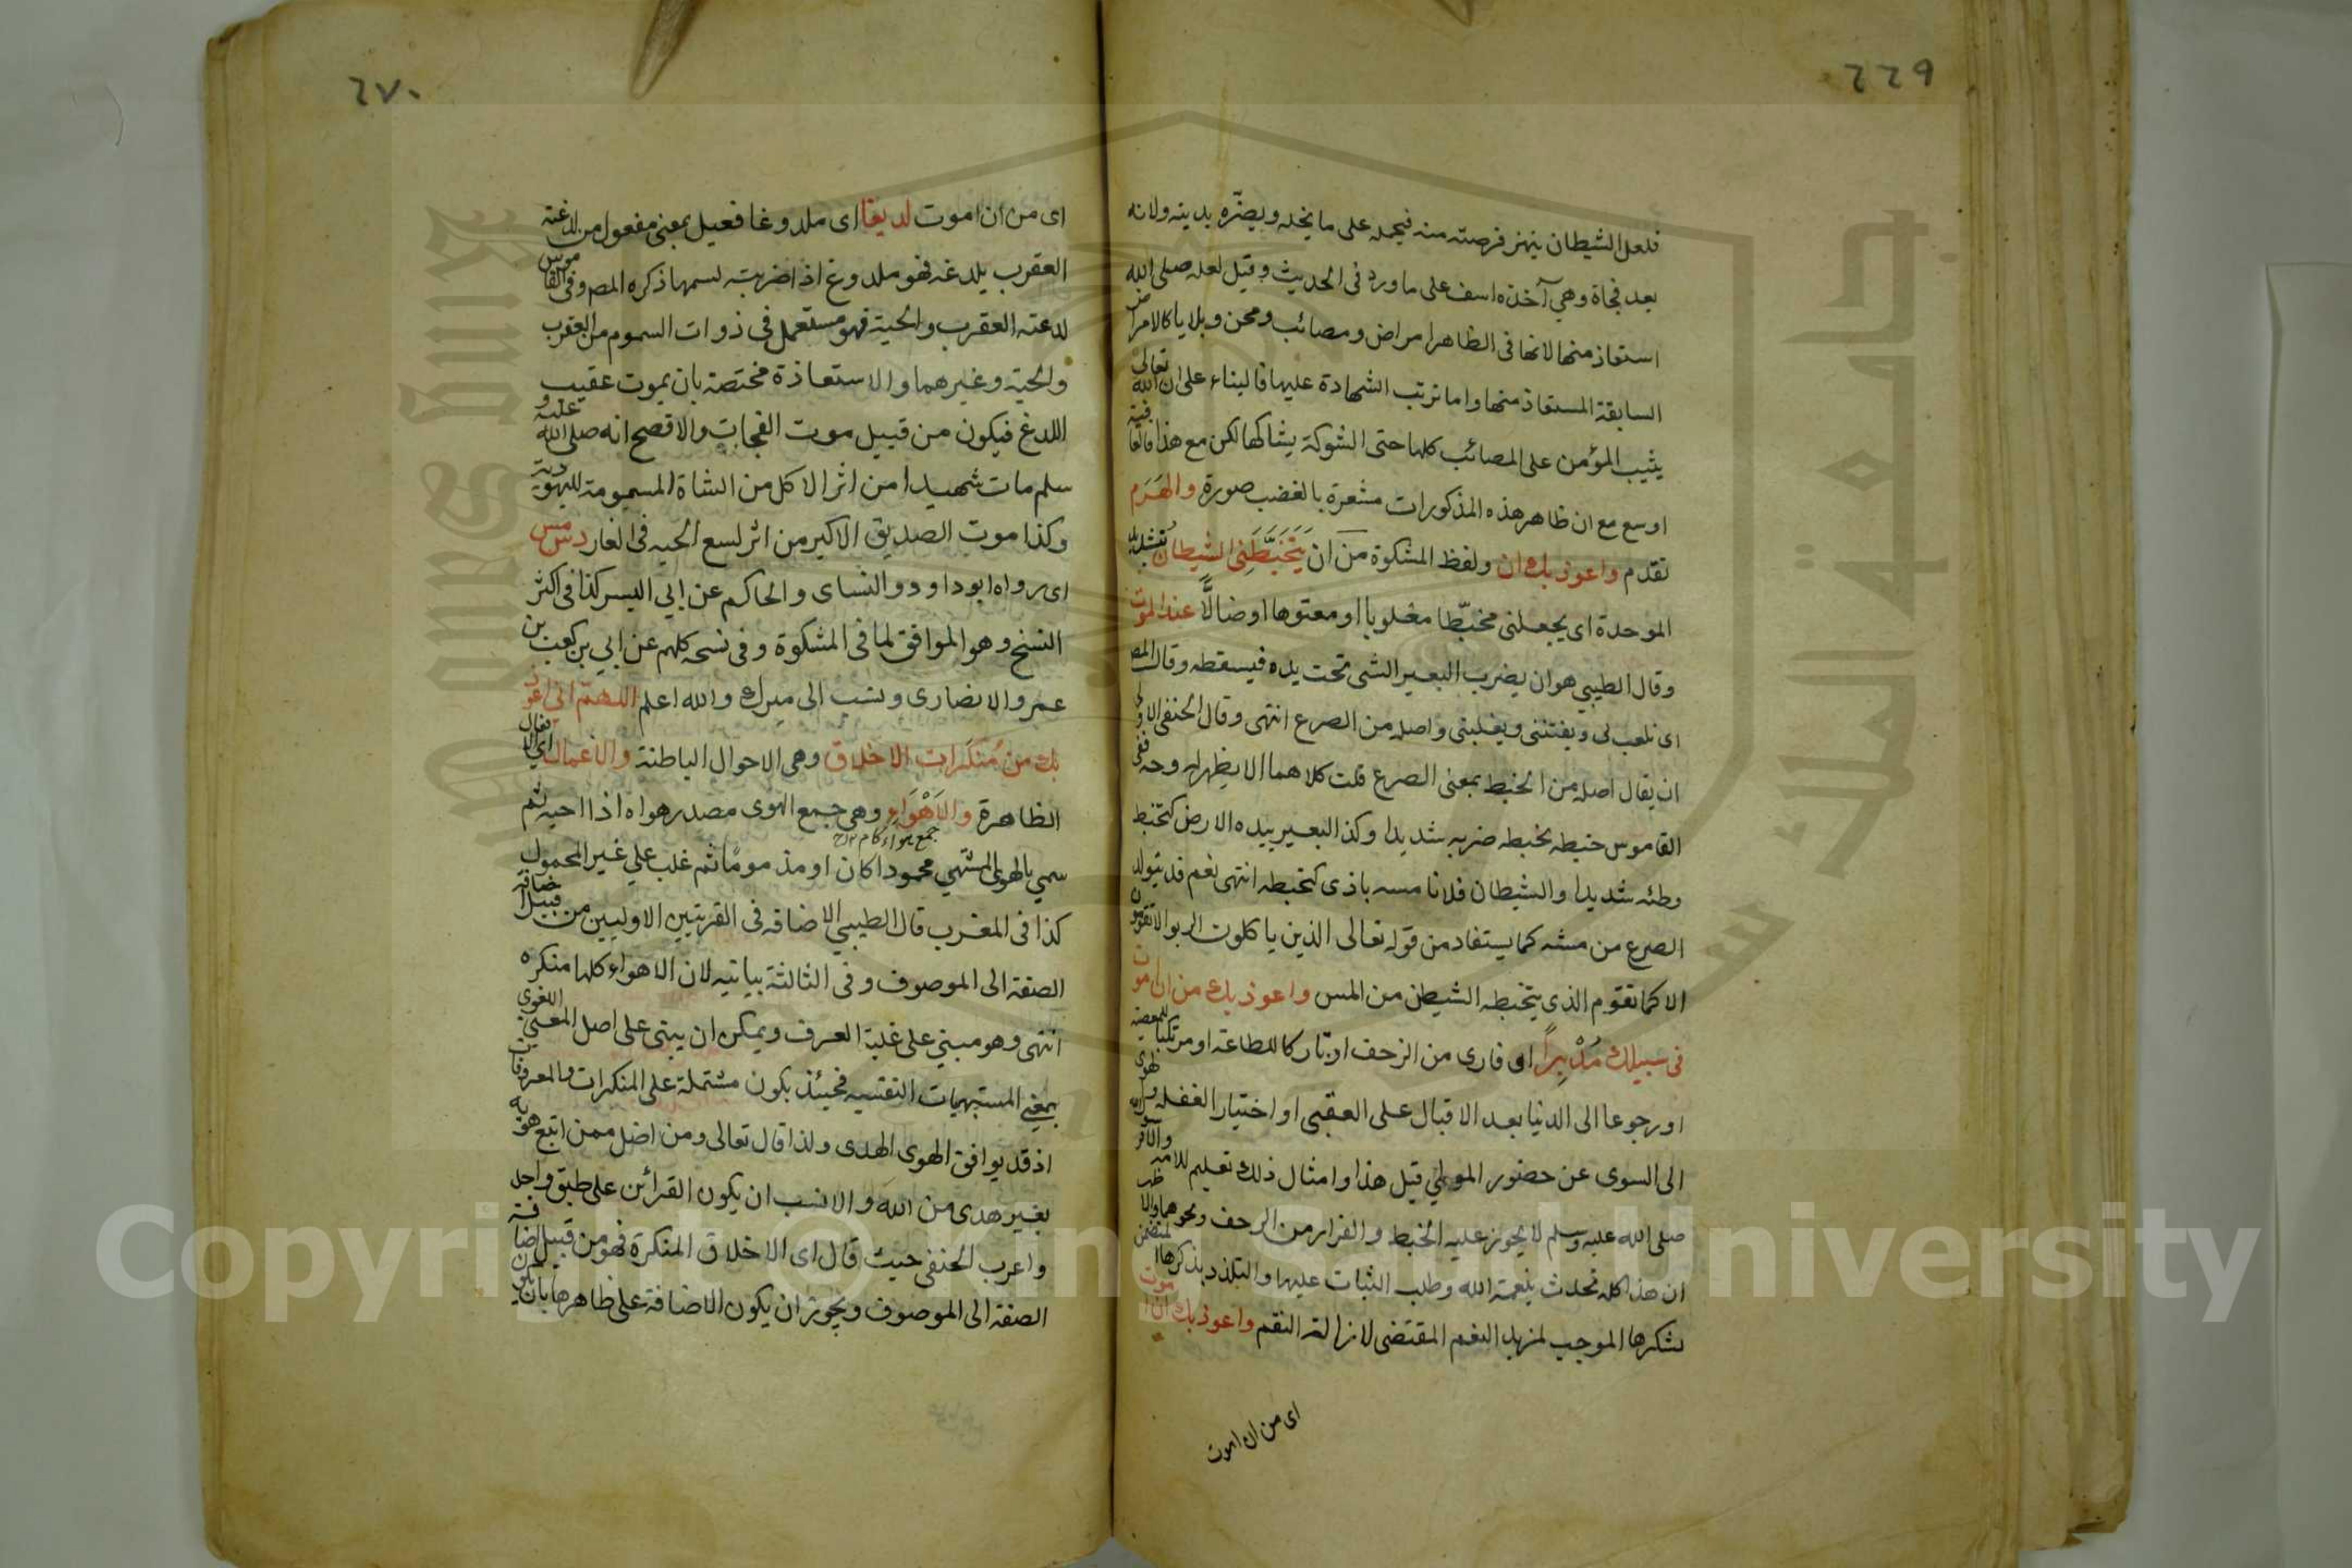 ٦٦٩
فلعل الشيطان ينهز فرصته منه فيحمله على ما يخله ويضره بدينه ولانه
بعد فجاة وهي آخذه اسف على ما ورد في الحديث وقيل لعله صلى الله
استعاذ منها لانها في الظاهر امراض ومصائب ومحن وبلايا كالامراض
السابقة المستعاذ منها واما ترتب الشهادة عليها فالبناء على ان الله تعالى
يثيب المؤمن على المصائب كلها حتى الشوكة يشاكها لكن مع هذا فالعافية
اوسع مع ان ظاهر هذه المذكورات مشعرة بالغضب صورة والهَرَم
تقدم واعوذ بك ان ولفظ المشكوة من ان يَتَخَبَّطَنِى الشيطان بتشديد
الموحدة اى يجعلنى مخبّطا مغلوبا او معتوها اوضالًّا عند الموت
وقال الطيبي هو ان يضرب البعير الشى تحت يده فيسقطه وقال المص
اى تلعب لى ويفتننى ويغلبنى واصله من الصرع انتهى وقال الحنفى الاولى
ان يقال اصله من الخبط بمعنى الصرع قلت كلاهما لا يظهر له وجه ففى
القاموس خبطه يخبطه ضربه شديدا وكذا البعير بيده الارض كتخبط
وطئه شديدا والشيطان فلانا مسه باذى كتخبطه انتهى نعم قد يتولد
الصرع من مسه كما يستفاد من قوله تعالى الذين ياكلون الربوا لا يقومون
الا كما يقوم الذى يتخبطه الشيطن من المس واعوذ بك من ان اموت
فى سبيلك مُدْبِرًا اى فارى من الزحف او تاركا للطاعة او مرتكبا للمعصية
او رجوعا الى الدنيا بعد الاقبال على العقبى او اختيار الغفلة
الى السوى عن حضور المولي قيل هذا وامثال ذلك تعليم للامه والا فرسول
صلى الله عليه وسلم لا يجوز عليه الخبط والفرار من الزحف ونحوهما والاظهر
ان هذا كله تحدث بنعمة الله وطلب الثبات عليها والتلذذ بذكرها المتضمن
بشكرها الموجب لمزيد النعم المقتضى لازالة النقم واعوذ بك ان اموت
اى من ان اموت
٦٧٠
اى من ان اموت لديغا اى ملدوغا فعيل بمعنى مفعول من لدغته
العقرب يلدغه فهو ملدوغ اذا ضربته بسمها ذكره المص وفى القاموس
لدغته العقرب والحية فهو مستعمل فى ذوات السموم من العقرب
والحية وغيرهما والاستعاذة مختصة بان يموت عقيب
اللدغ فيكون من قبيل موت الفجات والا فصح انه صلى الله عليه و
سلم مات شهيدا من اثر الاكل من الشاة المسمومة لليهودية
وكذا موت الصديق الاكبر من اثر لسع الحيه فى الغار د س مس
اى رواه ابو داود والنساى والحاكم عن ابي اليسر كذا فى اكثر
النسخ وهو الموافق لما فى المشكوة وفى نسخه كلهم عن ابي بن كعب بن
عمرو الانصارى ونسب الى ميرك والله اعلم اللهمّ انى اعوذ
بك من مُنكَرات الاخلاق وهى الاحوال الباطنة والاعمال اى الافعال
الظاهرة والاَهْوَاءِ وهى جمع الهوى مصدر هواه اذا احبه ثم
سمي بالهوى المشتهي محمودا كان او مذموما ثم غلب على غير المحمود
كذا فى المغرب قال الطيبي الاضافه فى القرينتين الاوليين من قبيل اضافة
الصفة الى الموصوف وفى الثالثة بيانيه لان الاهواء كلها منكره
انتهى وهو مبنى على غلبة العرف ويمكن ان يبنى على اصل المعنى اللغوى
بمعنى المشتهيات النفسيه فحينئذ يكون مشتملة على المنكرات والمعروفات
اذ قد يوافق الهوى الهدى ولذا قال تعالى ومن اضل ممن اتبع هويه
بغير هدى من الله والانسب ان يكون القرائن على طبق واحد
واعرب الحنفى حيث قال اى الاخلاق المنكرة فهو من قبيل اضافة
الصفة الى الموصوف ويجوز ان يكون الاضافة على ظاهرها بان يكون
Copyright © King Saud University